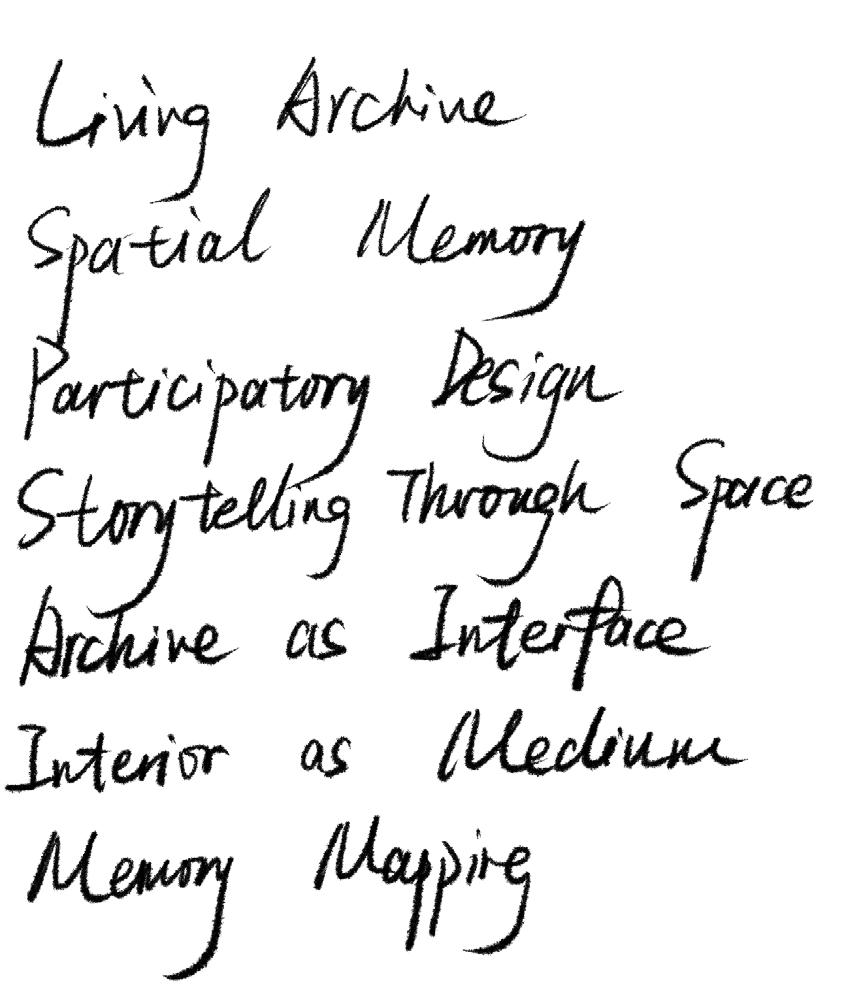 Living Archive
Spatial Memory
Participatory Design
Storytelling Through Space
Archive as Interface
Interior as Medium
Memory Mapping